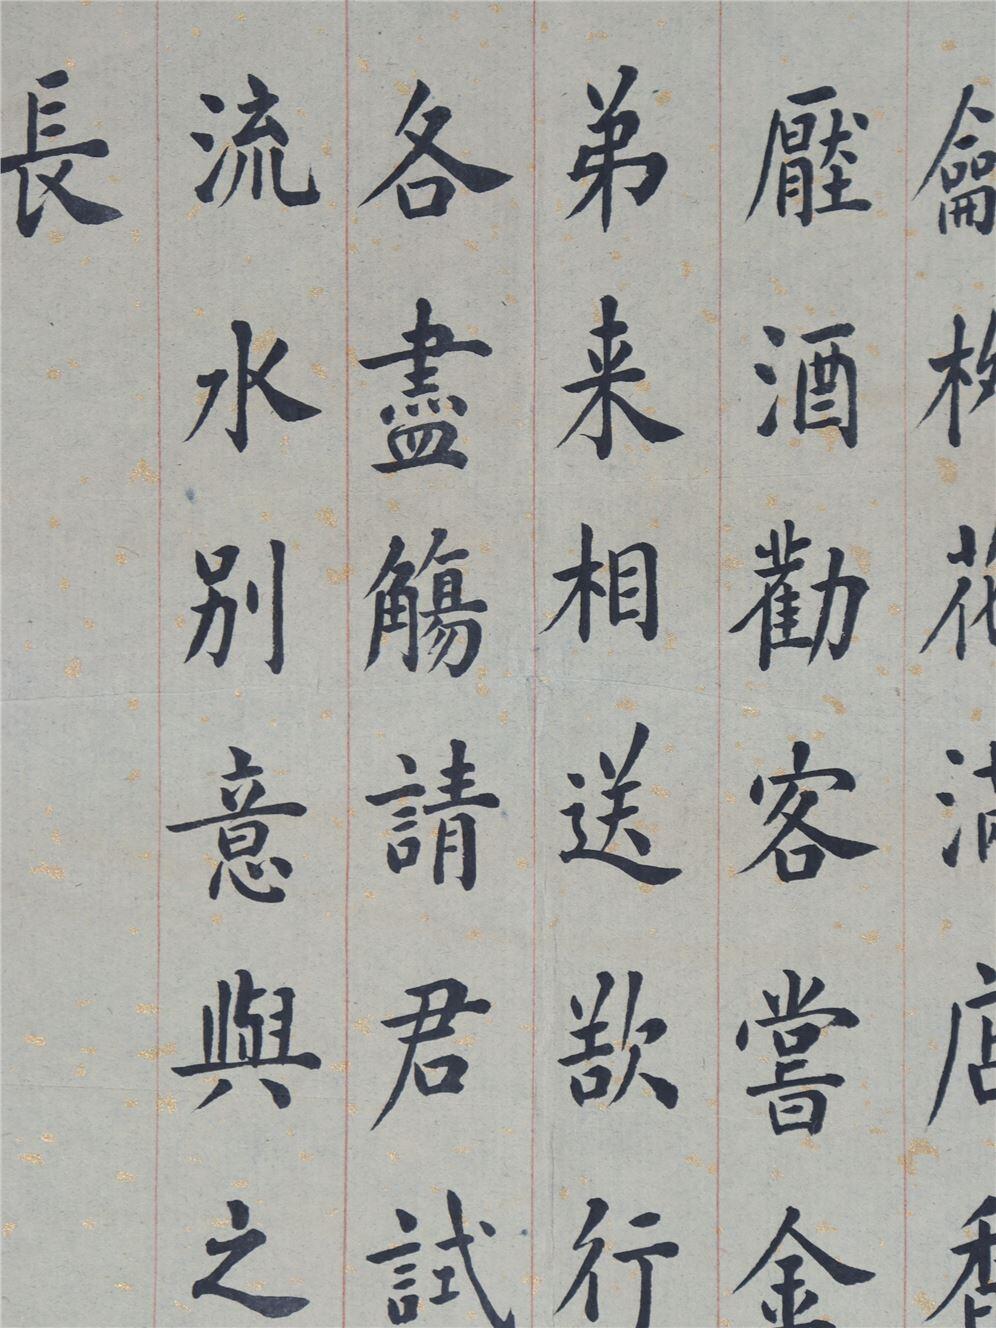 龡栁花滿店香
壓酒勸客嘗金
弟来相送欲行
各盡觴請君試
流水别意與之
長